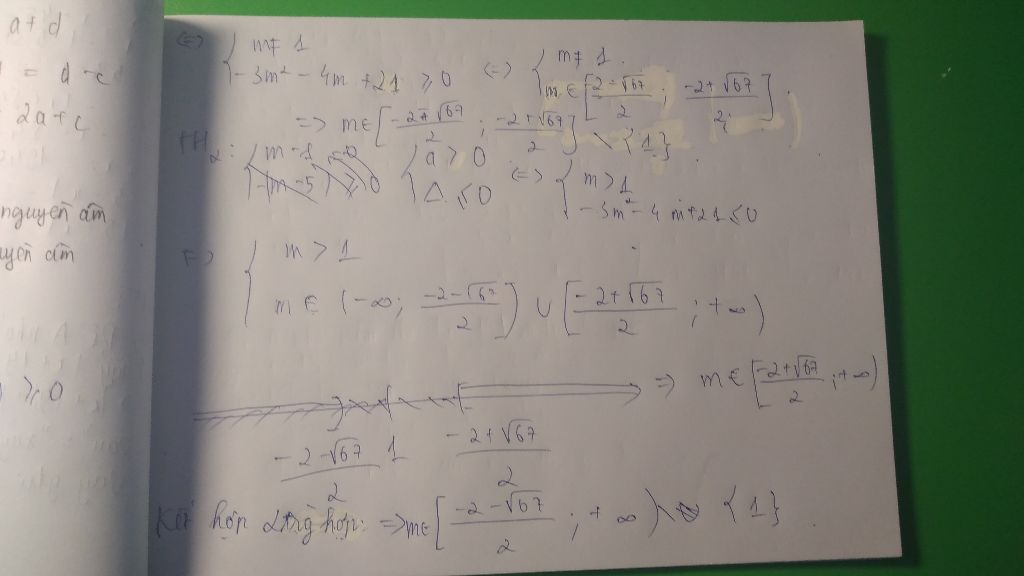 a + d
= d - c
2a + c
nguyên âm
âm
≥ 0
<=> { m ≠ 1
-3m² - 4m + 21 ≥ 0 <=> { m ≠ 1
m ∈ [(-2-√67)/2 ; (-2+√67)/2]
=> m ∈ [(-2-√67)/2 ; (-2+√67)/2] \ {1}
TH2: { a > 0
Δ ≤ 0 <=> { m > 1
-3m² - 4m + 21 ≤ 0
<=> { m > 1
m ∈ (-∞; (-2-√67)/2] ∪ [(-2+√67)/2 ; +∞)
=> m ∈ [(-2+√67)/2 ; +∞)
(-2-√67)/2 1 (-2+√67)/2
Kết hợp 2 trg hợp: => m ∈ [(-2-√67)/2 ; +∞) \ {1}